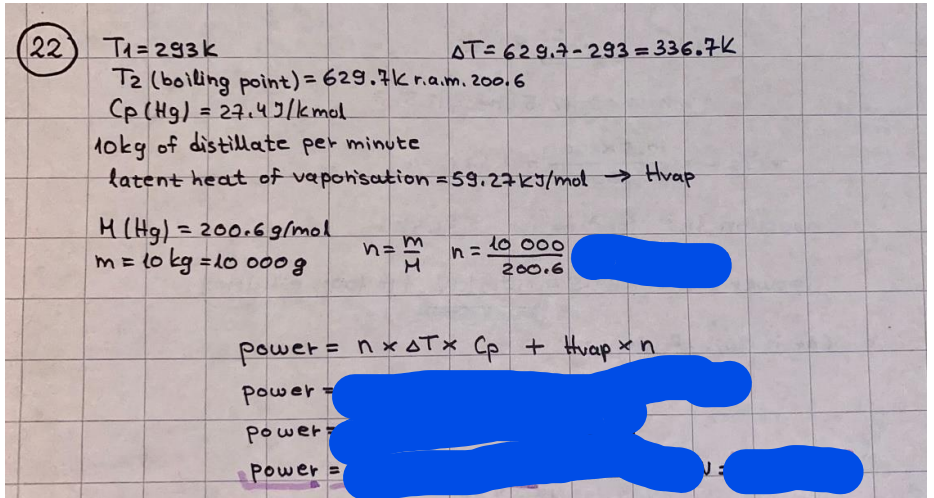 22 T1 = 293K ΔT = 629.7 - 293 = 336.7K
T2 (boiling point) = 629.7K r.a.m. 200.6
Cp (Hg) = 27.4 J/kmol
10kg of distillate per minute
latent heat of vaporisation = 59.27 kJ/mol → Hvap
M (Hg) = 200.6 g/mol
m = 10 kg = 10 000 g n = m/M n = 10 000/200.6
power = n × ΔT × Cp + Hvap × n
power =
power =
power = =